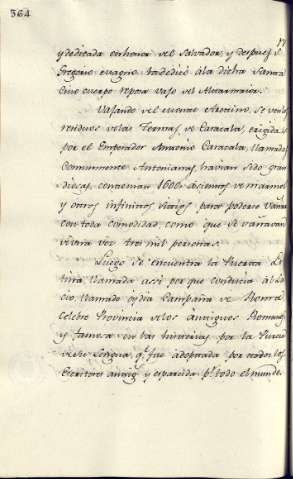 364
y dedicada en honra del Salvador, y despues S.
Gregorio Magno la dedicó á la dicha Santa
cuyo cuerpo reposa vajo del Altar maior.
Vajando del monte Aventino, se ven los
residuos de las Termas de Caracala, erigidas
por el Emperador Antonino Caracala, llamadas
Comunmente Antonianas, havian sido gran
diosas, contenian 1600 asientos de marmol
y otros infinitos sitios para poderse vañar
con toda comodidad, como que se vañavan
á vez tres mil personas.
Luego se encuentra la Puerta La
tina llamada assi por que conducia al La
cio, llamado oy dia Campaña de Roma
Celebre Provincia de los antiguos Romanos
y famosa en las historias por la Pureza
de su Lengua, q.e fue adoptada por todos los
Escritores antig.s y esparcida p.r todo el mundo.